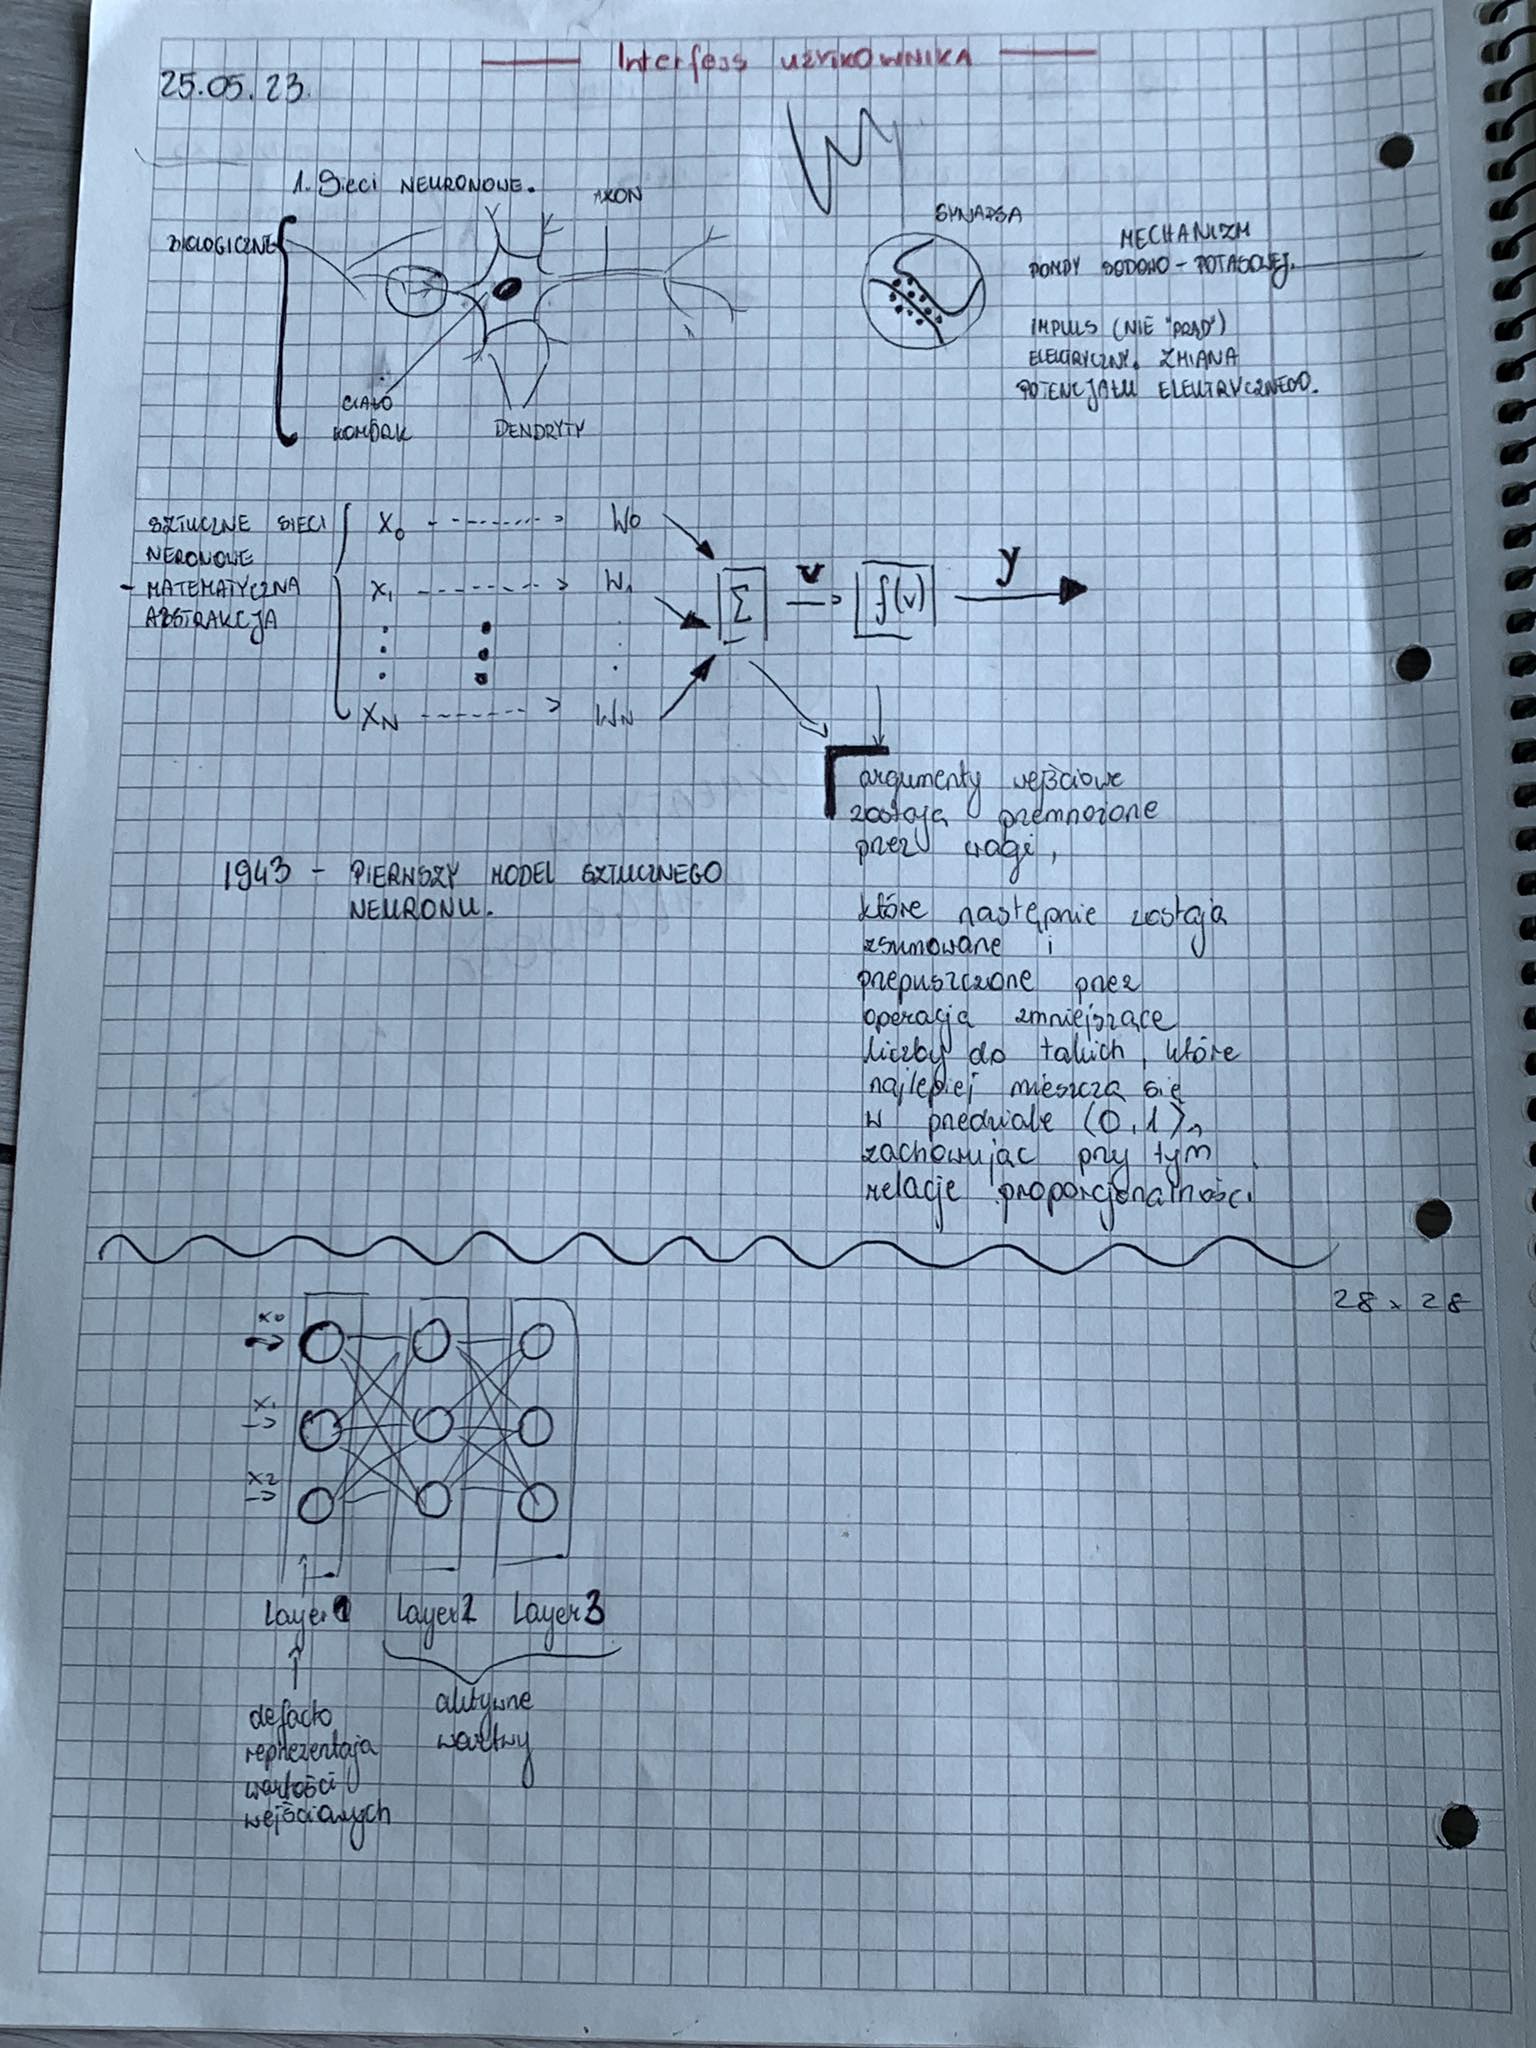 Interfess użytkownika
25.05.23.
1. Sieci NEURONOWE.
AXON
BIOLOGICZNE
CIAŁO
KOMÓRK
DENDRYTY
SYNAPSA
MECHANIZM
POMPY SODOWO - POTASOWEJ.
IMPULS (NIE "PRĄD")
ELEKTRYCZNY. ZMIANA
POTENCJAŁU ELEKTRYCZNEGO.
SZTUCZNE SIECI
NERONOWE
- MATEMATYCZNA
ABSTRAKCJA
X0 W0
X1 W1
XN WN
Σ v f(v) y
argumenty wejściowe
zostają przemnożone
przez wagi,
które następnie zostają
zsumowane i
przepuszczone przez
operacją zmniejszące
liczby do takich, które
najlepiej mieszczą się
w przedziale (0,1),
zachowując przy tym
relacje proporcjonalności.
1943 - PIERWSZY MODEL SZTUCZNEGO
NEURONU.
28 x 28
X0
X1
X2
Layer 1 Layer 2 Layer 3
defacto
reprezentają
wartości
wejściowych
aktywne
warstwy